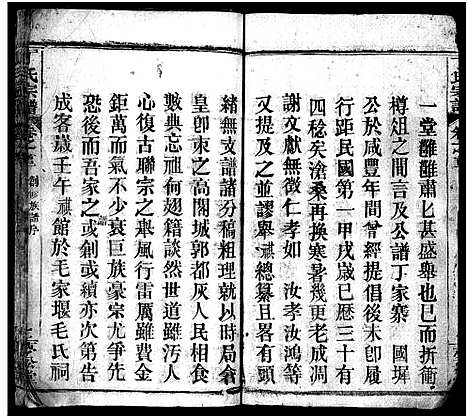 一堂雝雝肅肅匕甚盛與也已而折衝
樽俎之間言及公譜丁家寨 國墀
公於咸豐年間曾經提倡後未卽履
行距民國第一甲戌歲已歷三十有
四稔矣滄桑再換寒暑幾更老成凋
謝文獻無徵仁孝如 汝孝汝鴻等
又提及之並謬舉 祺總纂且畧嘅
緒無支譜諸分稿粗理就以時局倉
皇卽束之高閣城郭都灰人民相食
數典忘祖何翅籍談然世道雖汚人
心復古聯宗之舉風行雷厲雖費金
鉅萬而氣不少衰巨族豪宗尤爭先
恐後而吾家之或創或續亦次第告
成客歲壬午 祺館於毛家堰毛氏祠
丁氏宗譜
卷之首 創修族譜序
氏宗譜